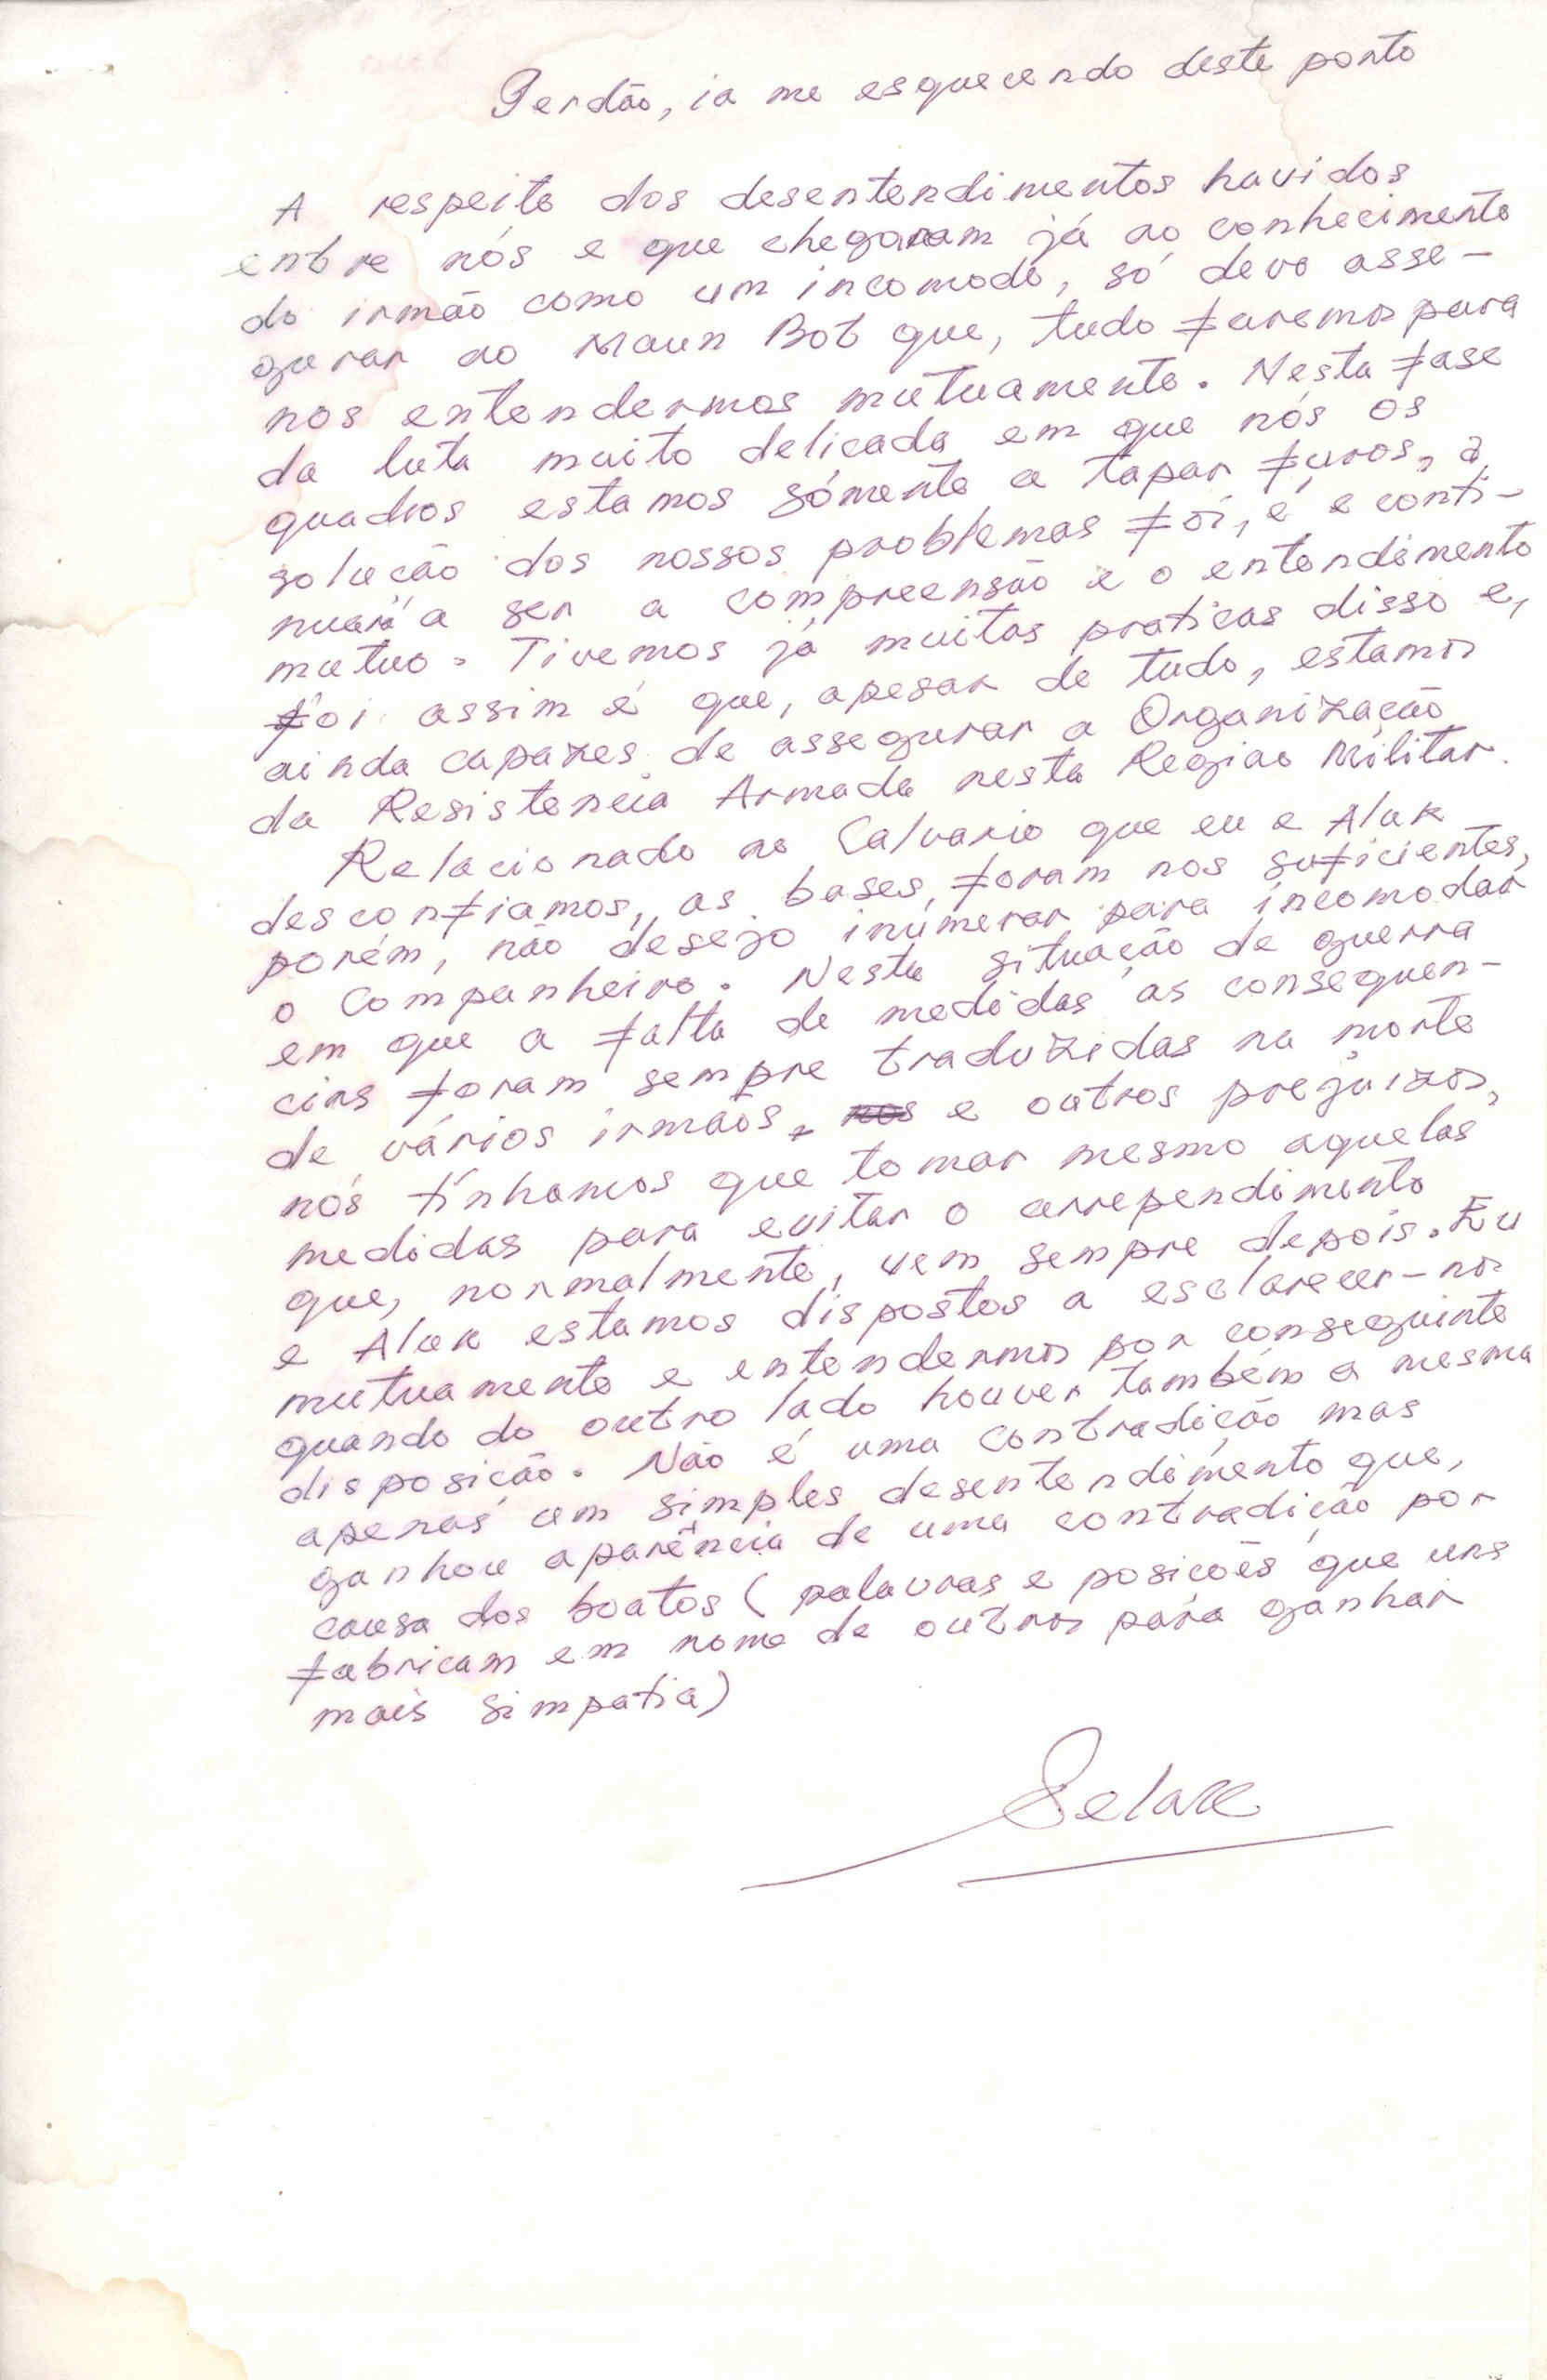 Perdão, ia me esquecendo deste ponto
A respeito dos desentendimentos havidos
entre nós e que chegaram já ao conhecimento
do irmão como um incomodo, só devo asse-
gurar ao Maun Bot que, tudo faremos para
nos entendermos mutuamente. Nesta fase
da luta muito delicada em que nós os
quadros estamos sómente a tapar furos, a
solução dos nossos problemas foi, é e conti-
nuará a ser a compreensão e o entendimento
mutuo. Tivemos já muitas praticas disso e,
foi assim é que, apesar de tudo, estamos
ainda capazes de assegurar a Organização
da Resistencia Armada nesta Regiao Militar.
Relacionado ao Calvario que eu e Alak
desconfiamos, as bases, foram nos suficientes,
porém, não desejo inúmerar para incomodar
o Companheiro. Nesta situação de guerra
em que a falta de medidas as consequen-
cias foram sempre traduzidas na morte
de vários irmãos, e outros prejuizos,
nós tínhamos que tomar mesmo aquelas
medidas para evitar o arrependimento
que, normalmente, vem sempre depois. Eu
e Alak estamos dispostos a esclarecer-nos
mutuamente e entendermos por conseguinte
quando do outro lado houver também a mesma
disposição. Não é uma contradição mas
apenas um simples desentendimento que,
ganhou aparência de uma contradição por
causa dos boatos (palavras e posições que uns
fabricam em nome de outros para ganhar
mais simpatia)
Selak